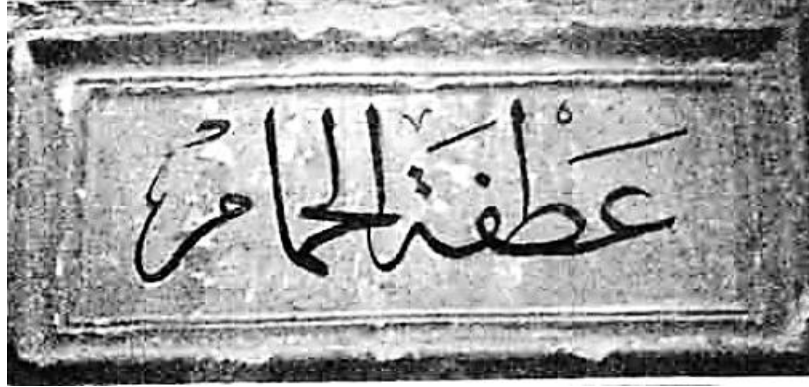 عَطْفَةُ الحمامُ